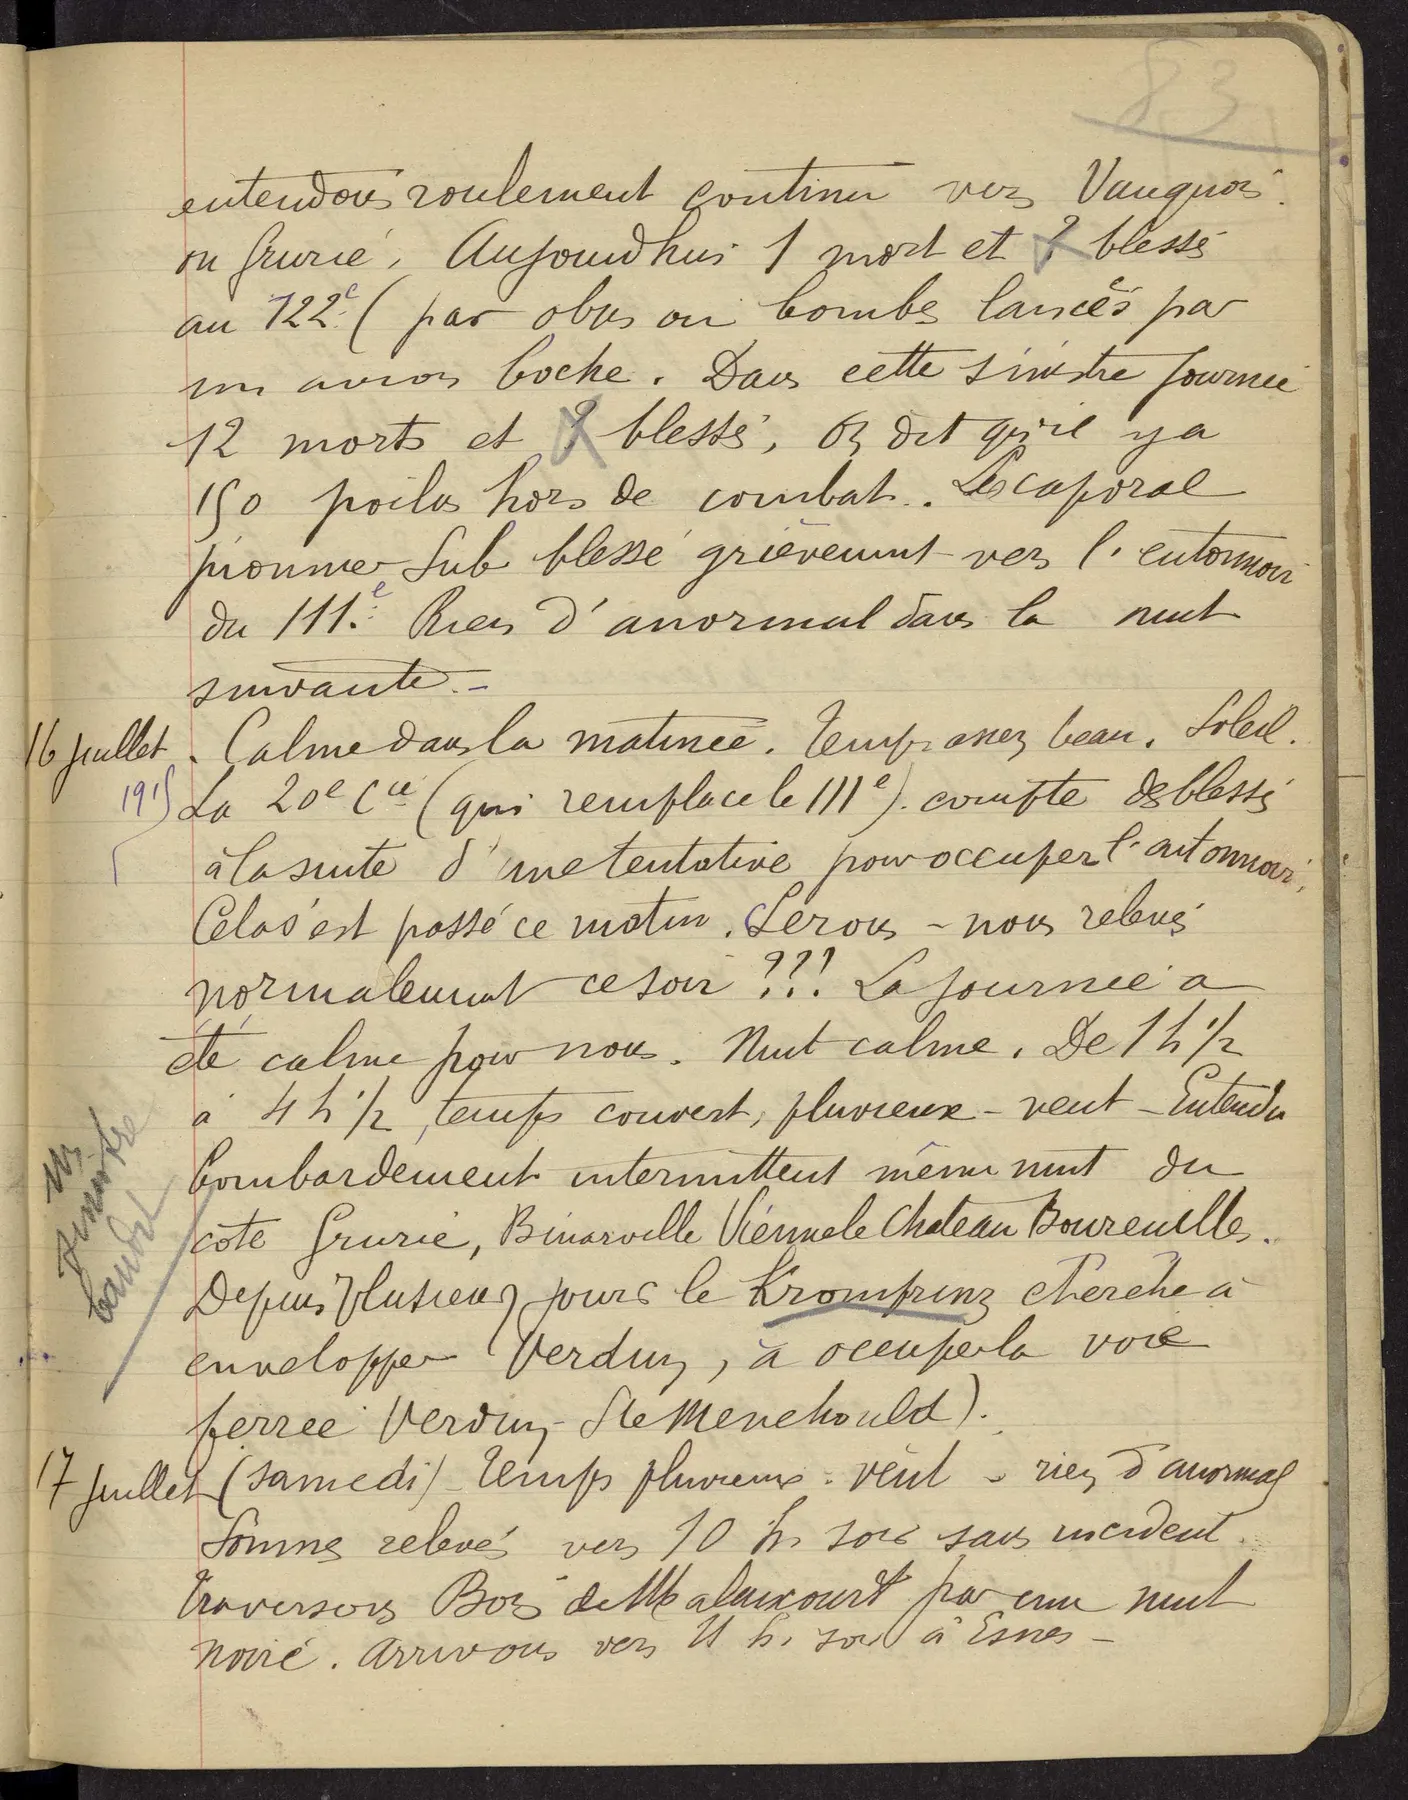 83
entendons roulement continu vers Vauquois
ou Grurie, Aujourd'hui 1 mort et ? blessés
au 122e (par obus ou bombes lancés par
un avion boche. Dans cette sinistre journée
12 morts et ? blessés, On dit qu'il y a
150 poilus hors de combat. Le caporal
pionnier Sub blessé grièvement vers l'entonnoir
du 111.e Rien d'anormal dans la nuit
suivante. -
16 Juillet. Calme dans la matinée. Temps assez beau. Soleil.
1915 La 20e Cie (qui remplace le 111e). compte des blessés
à la suite d'une tentative pour occuper l'entonnoir.
Cela s'est passé ce matin. Serons-nous relevés
normalement ce soir ??! La journée a
été calme pour nous. Nuit calme. De 1 h 1/2
à 4 h 1/2, temps couvert, pluvieux - vent - Entendu
bombardement intermittent même nuit du
côté Grurie, Binarville Vienne le Chateau Boureuilles.
Mr
sinistre
bandit
Depuis plusieurs jours le Kromprinz cherche à
envelopper Verdun, à occuper la voie
ferrée Verdun - Ste Menehould).
17 Juillet (samedi) - Temps pluvieux - vent - rien d'anormal
Sommes relevés vers 10 h. soir sans incident.
Traversons Bois de Malancourt par une nuit
noire. Arrivons vers 11 h. soir à Esnes -